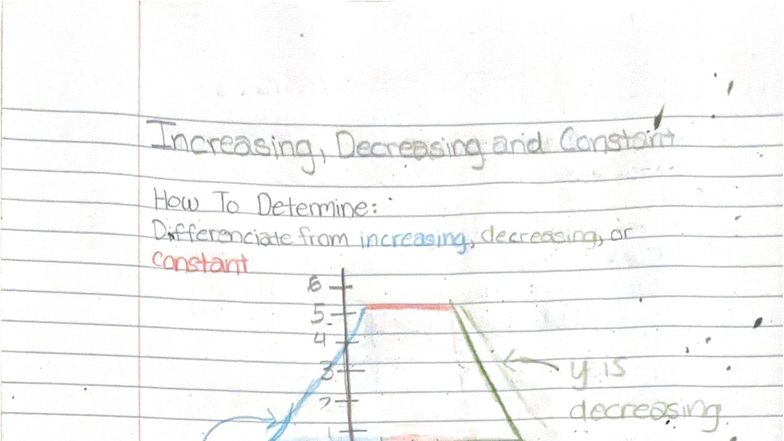 Increasing, Decreasing and Constant
How To Determine:
Differenciate from increasing, decreasing, or
constant
6
5
4
3
2
1
y is
decreasing